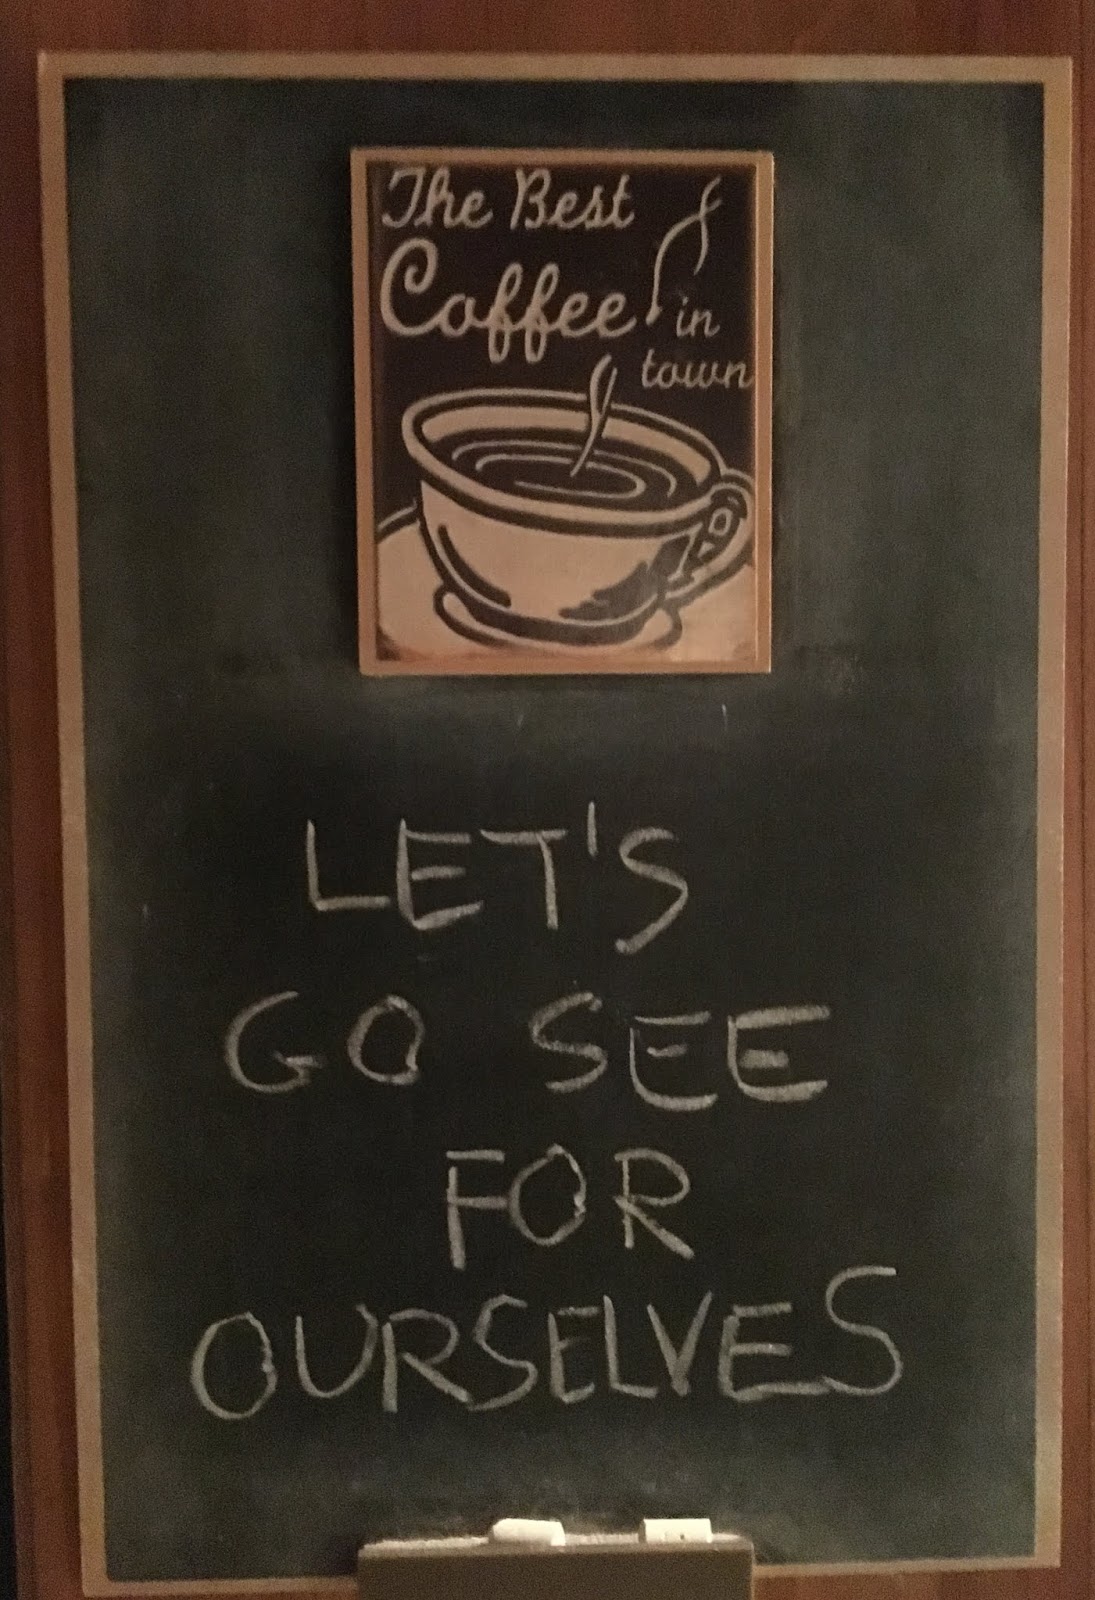 The Best
Coffee in
town
LET'S
GO SEE
FOR
OURSELVES